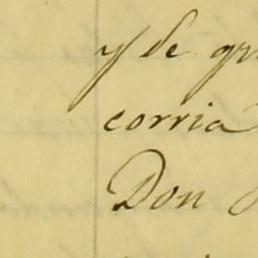 y de gr
corria
Don